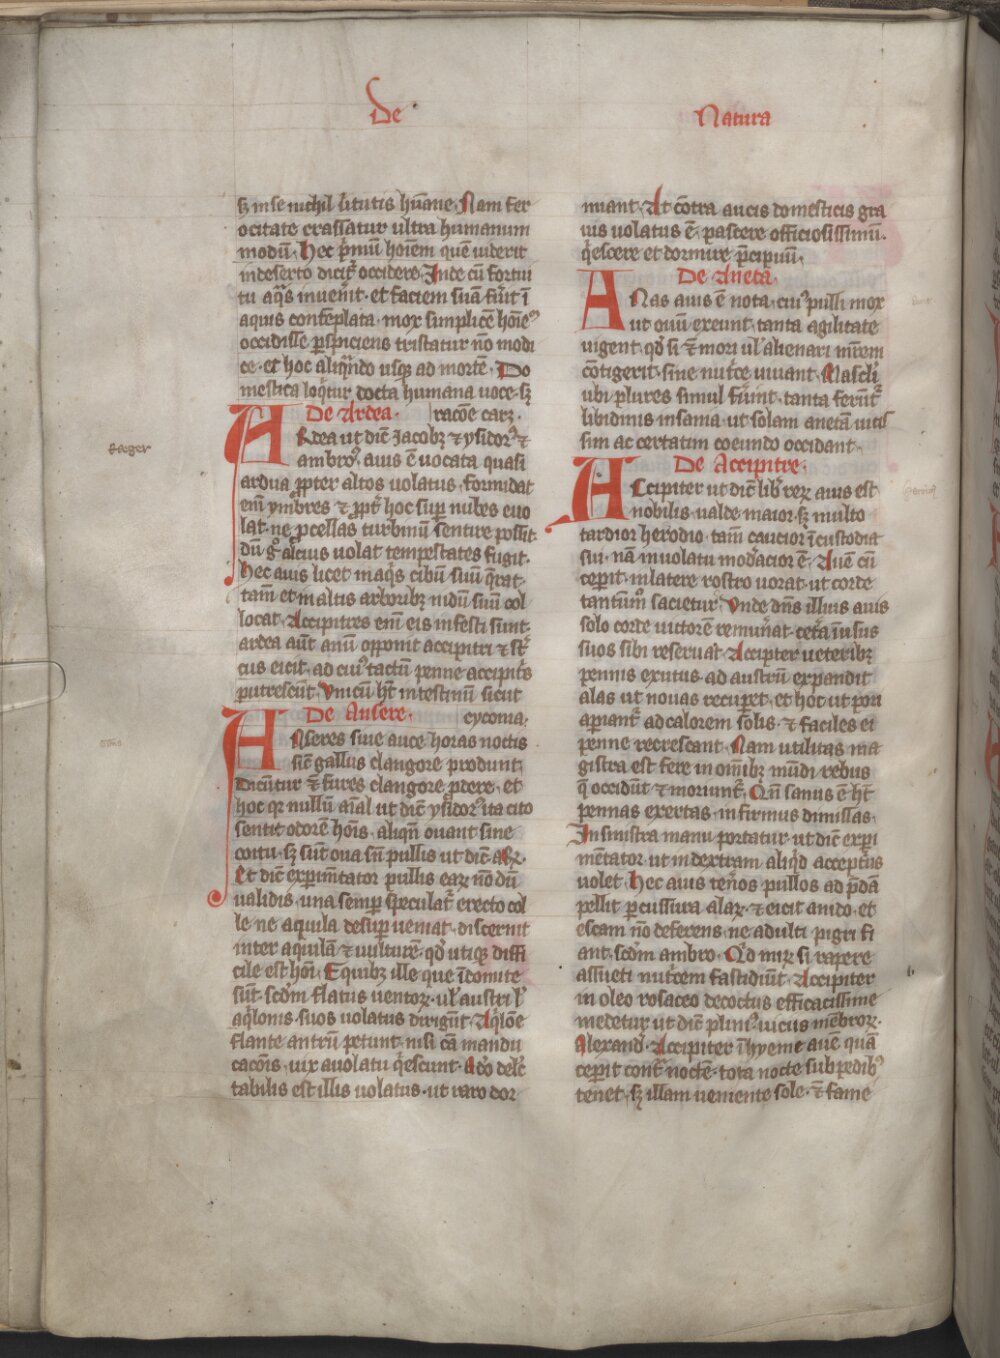 De
Natura
sꝫ in se nichil ũtutis hũane. Nam fer
ocitate crassatur ultra humanum
modũ. Hec p̃mũ hoĩem quẽ uiderit
in deserto dicit̃ occidere. Inde cũ fortui
tu aq̃s inuen̾it. et faciem suã fũit ĩ
aquis contẽplata. mox simplicẽ hoĩe⁹
occidisse ꝑspiciens tristatur nõ modi
ce. et hoc aliq̃ndo usqꝫ ad mortẽ. Do
mestica loq̃tur docta humana uoce. sꝫ
De Ardea. racõe carꝫ.
ARdea ut diẽ Jacobꝫ ⁊ ysidor⁹ ⁊
ambro⁹. auis ẽ uocata quasi
ardua ꝓpter altos uolatus. formidat
em̃ ymbres ⁊ ꝓpt̃ hoc suꝑ nubes euo
lat. ne ꝓcellas turbinũ sentire possit.
dũ gͦ alcius uolat tempestates fugit.
Hec auis licet in aq̃s cibũ suũ q̃rat.
tam̃ et in altis arboribꝫ nidũ suũ col
locat. Accipitres em̃ eis infesti sunt.
ardea aũt anũ opponit accipitri ⁊ st̾
cus eicit. ad cui⁹ tactũ penne accipit̾s
putrescũt. Vnicũ ht̃ intestinũ sicut
De Ansere. cyconia.
ANseres siue auce horas noctis
sic̃ gallus clangore produnt.
Dicũtur ⁊ fures clangore ꝓdere. et
hoc qr nullũ aĩal ut diẽ ysidor⁹ ita cito
sentit odorẽ hoĩs. aliqñ ouant sine
coitu. sꝫ sũt oua sñ pullis ut diẽ aꝝ.
Et diẽ exꝑim̃tator pullis earꝫ nõ dũ
ualidis. una semꝑ speculat̃ erecto col
lo ne aquila desuꝑ ueniat. discernit
inter aquilã ⁊ uulturẽ. qd̾ utiqꝫ diffi
cile est hoĩ. Equibꝫ ille que ĩdomite
sũt. scd̾m flatus uentoꝝ. ul̾ austri ł
aq̃lonis. suos uolatus dirigũt. Aq̃lõe
flante antrũ petunt. nisi cã mandu
cacõis. uix a uolatu q̃escunt. Adͦ delc̃
tabilis est illis uolatus. ut raro dor
miant. At cõtra aucis domesticis gra
uis uolatus ẽ. pascere officiosissimũ.
q̃escere et dormire p̃cipuũ.
De Aneta.
ANas auis ẽ nota. cui⁹ pulli mox
ut ouũ exeunt. tanta agilitate
uigent. qd̾ si ⁊ mori ul̾ alienari mr̃em
cõtigerit. sine nut̾ce uiuant. Masc̾li
ubi plures simul fũint. tanta ferũt̃
libidinis insania. ut solam anetã uiciſ
sim ac certatim coeundo occidant.
De Accipitre.
ACcipiter ut dic̃ lib̾ reꝝ auis est
nobilis. ualde maior. sꝫ multo
tardior herodio. tam̃ caucior ĩ custodia
sui. nã in uolatu mod̾acior ẽ. Auẽ cũ
cepit. in latere rostro uorat. ut corde
tantũmͦ sacietur. Vnde dñs illius auis
solo corde uictorẽ remũat. cet̾a ĩ usus
suos sibi reseruat. Accipiter ueteribꝫ
pennis exutus. ad austrũ expandit
alas ut nouas recuꝑet. et hoc ut pori
aꝑiant̃ ad calorem solis. ⁊ faciles ei
penne recrescant. Nam utilitas ma
gistra est fere in om̃ibꝫ mũdi rebus
q̃ occidũt ⁊ moriunt̃. Qñ sanus ẽ ht̃
pennas exertas. infirmus dimissas.
In sinistra manu portatur. ut dic̃ exꝑi
mẽtator. ut in dextram aliq̾d accept̾us
uolet. Hec auis ten̾os pullos ad p̃dã
pellit ꝑcussura alaꝝ. ⁊ eicit a nido. et
escam nõ deferens. ne adulti pigri fi
ant. scd̾m ambro. Qd̾ mirꝫ si rapere
assueti nut̾cem fastidiũt. Accipiter
in oleo rosaceo decoctus efficacissime
medetur ut dic̃ plini⁹ uicus mẽbroꝝ.
Alexand̾. Accipiter ĩ hyeme auẽ quã
cepit cont̃ noctẽ. tota nocte sub pedib⁹
tenet. sꝫ illam ueniente sole. ⁊ fame